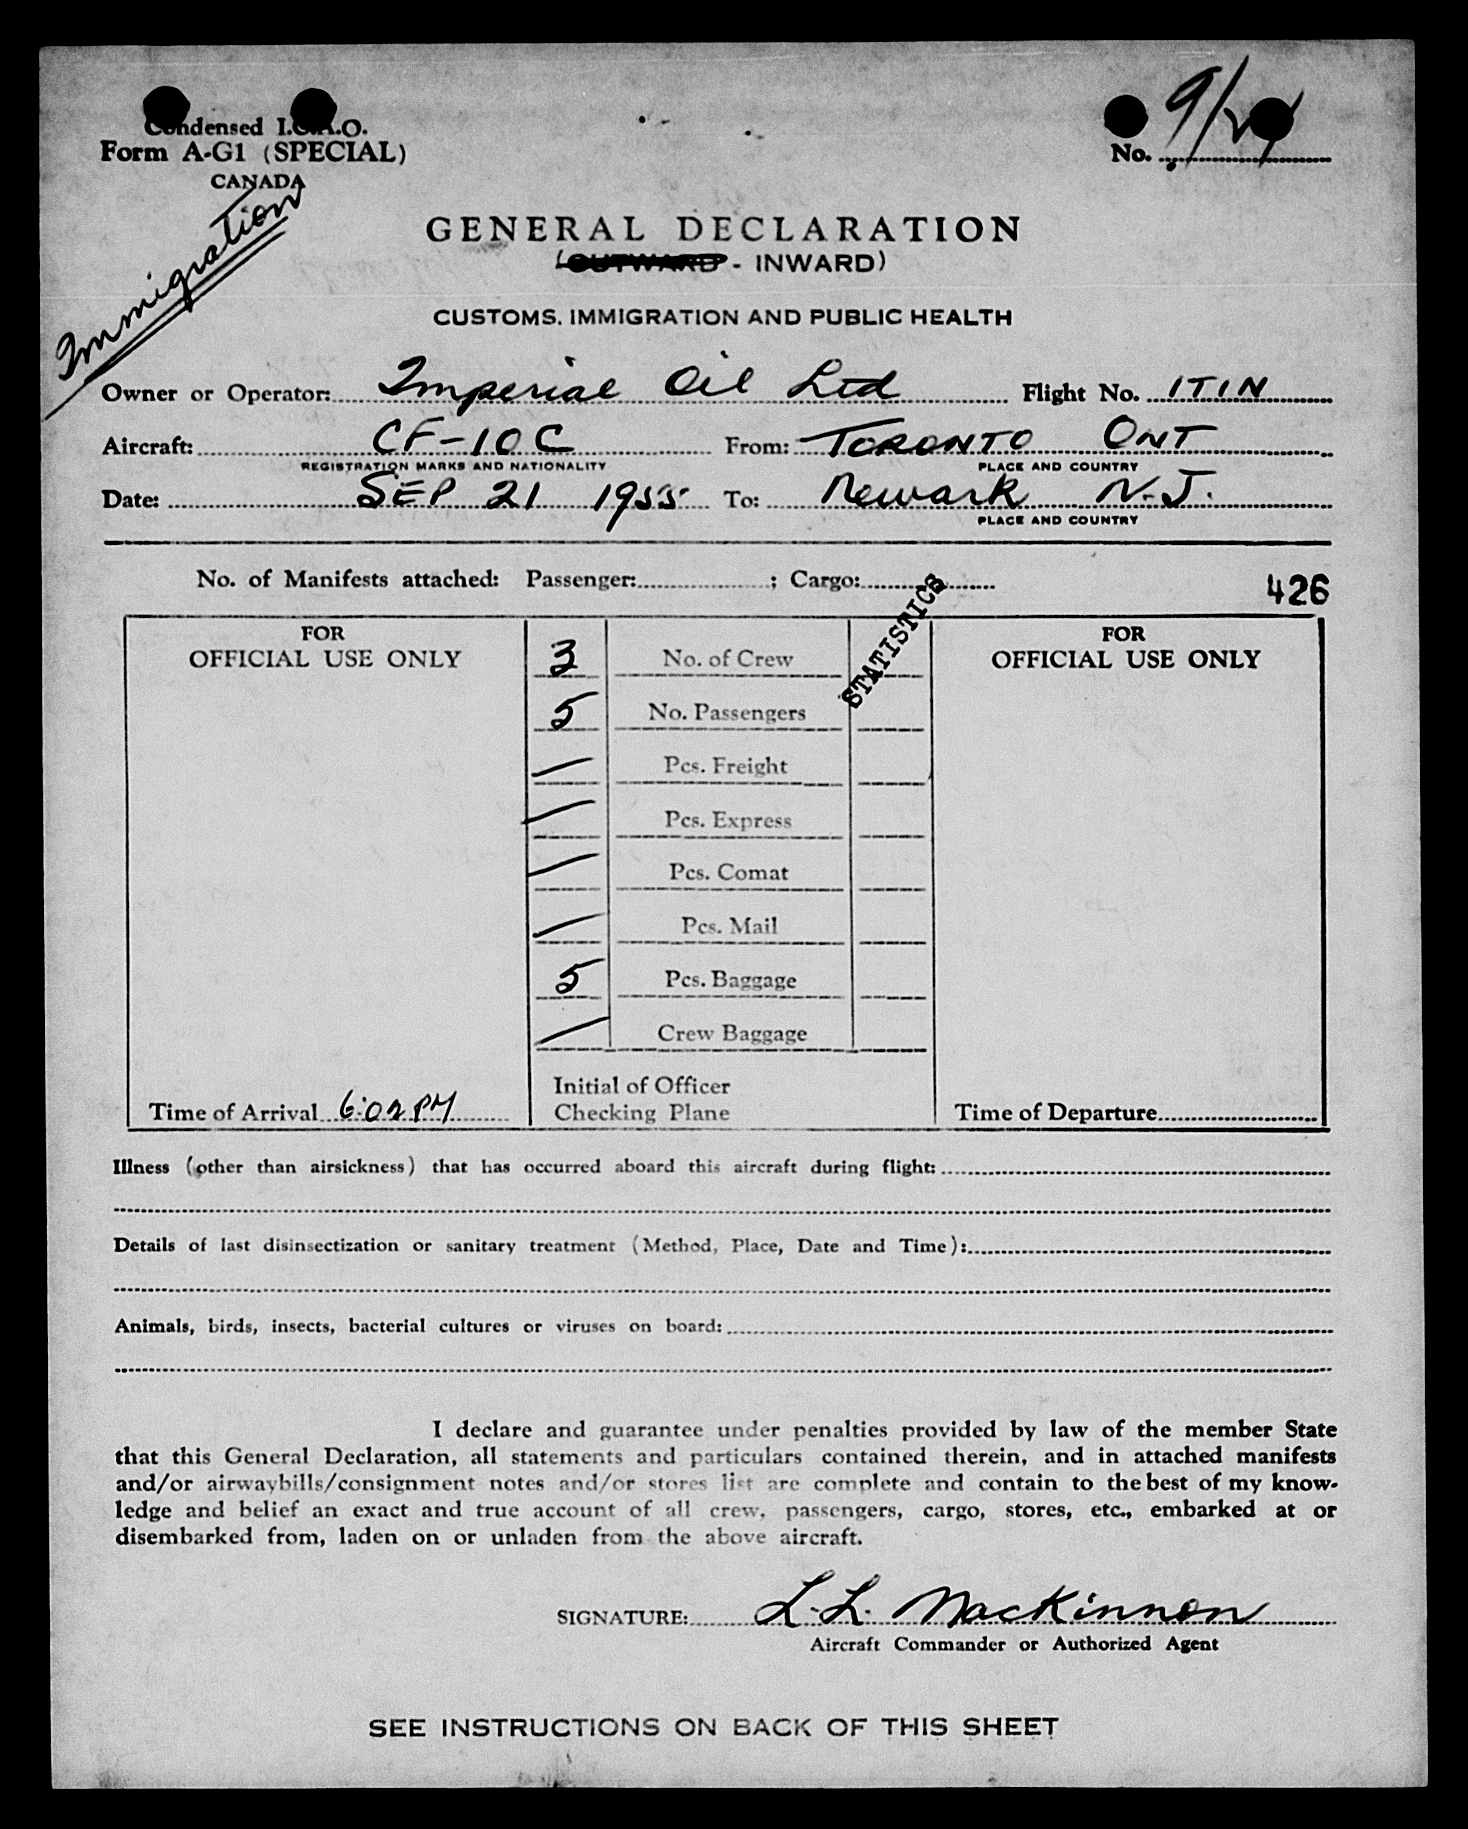 Condensed I.C.A.O.
Form A-G1 (SPECIAL)
CANADA
No. 9/21
Immigration
GENERAL DECLARATION
(OUTWARD - INWARD)
CUSTOMS, IMMIGRATION AND PUBLIC HEALTH
Owner or Operator: Imperial Oil Ltd Flight No. ITIN
Aircraft: CF-IOC From: TORONTO ONT
REGISTRATION MARKS AND NATIONALITY PLACE AND COUNTRY
Date: SEP 21 1955 To: Newark N.J.
PLACE AND COUNTRY
No. of Manifests attached: Passenger: ; Cargo:
426
STATISTICS
FOR
OFFICIAL USE ONLY
3 No. of Crew
5 No. Passengers
— Pcs. Freight
— Pcs. Express
— Pcs. Comat
— Pcs. Mail
5 Pcs. Baggage
— Crew Baggage
FOR
OFFICIAL USE ONLY
Time of Arrival 6:02 PM
Initial of Officer
Checking Plane
Time of Departure
Illness (other than airsickness) that has occurred aboard this aircraft during flight:
Details of last disinsectization or sanitary treatment (Method, Place, Date and Time):
Animals, birds, insects, bacterial cultures or viruses on board:
I declare and guarantee under penalties provided by law of the member State
that this General Declaration, all statements and particulars contained therein, and in attached manifests
and/or airwaybills/consignment notes and/or stores list are complete and contain to the best of my know-
ledge and belief an exact and true account of all crew, passengers, cargo, stores, etc., embarked at or
disembarked from, laden on or unladen from the above aircraft.
SIGNATURE: L.L. MacKinnon
Aircraft Commander or Authorized Agent
SEE INSTRUCTIONS ON BACK OF THIS SHEET